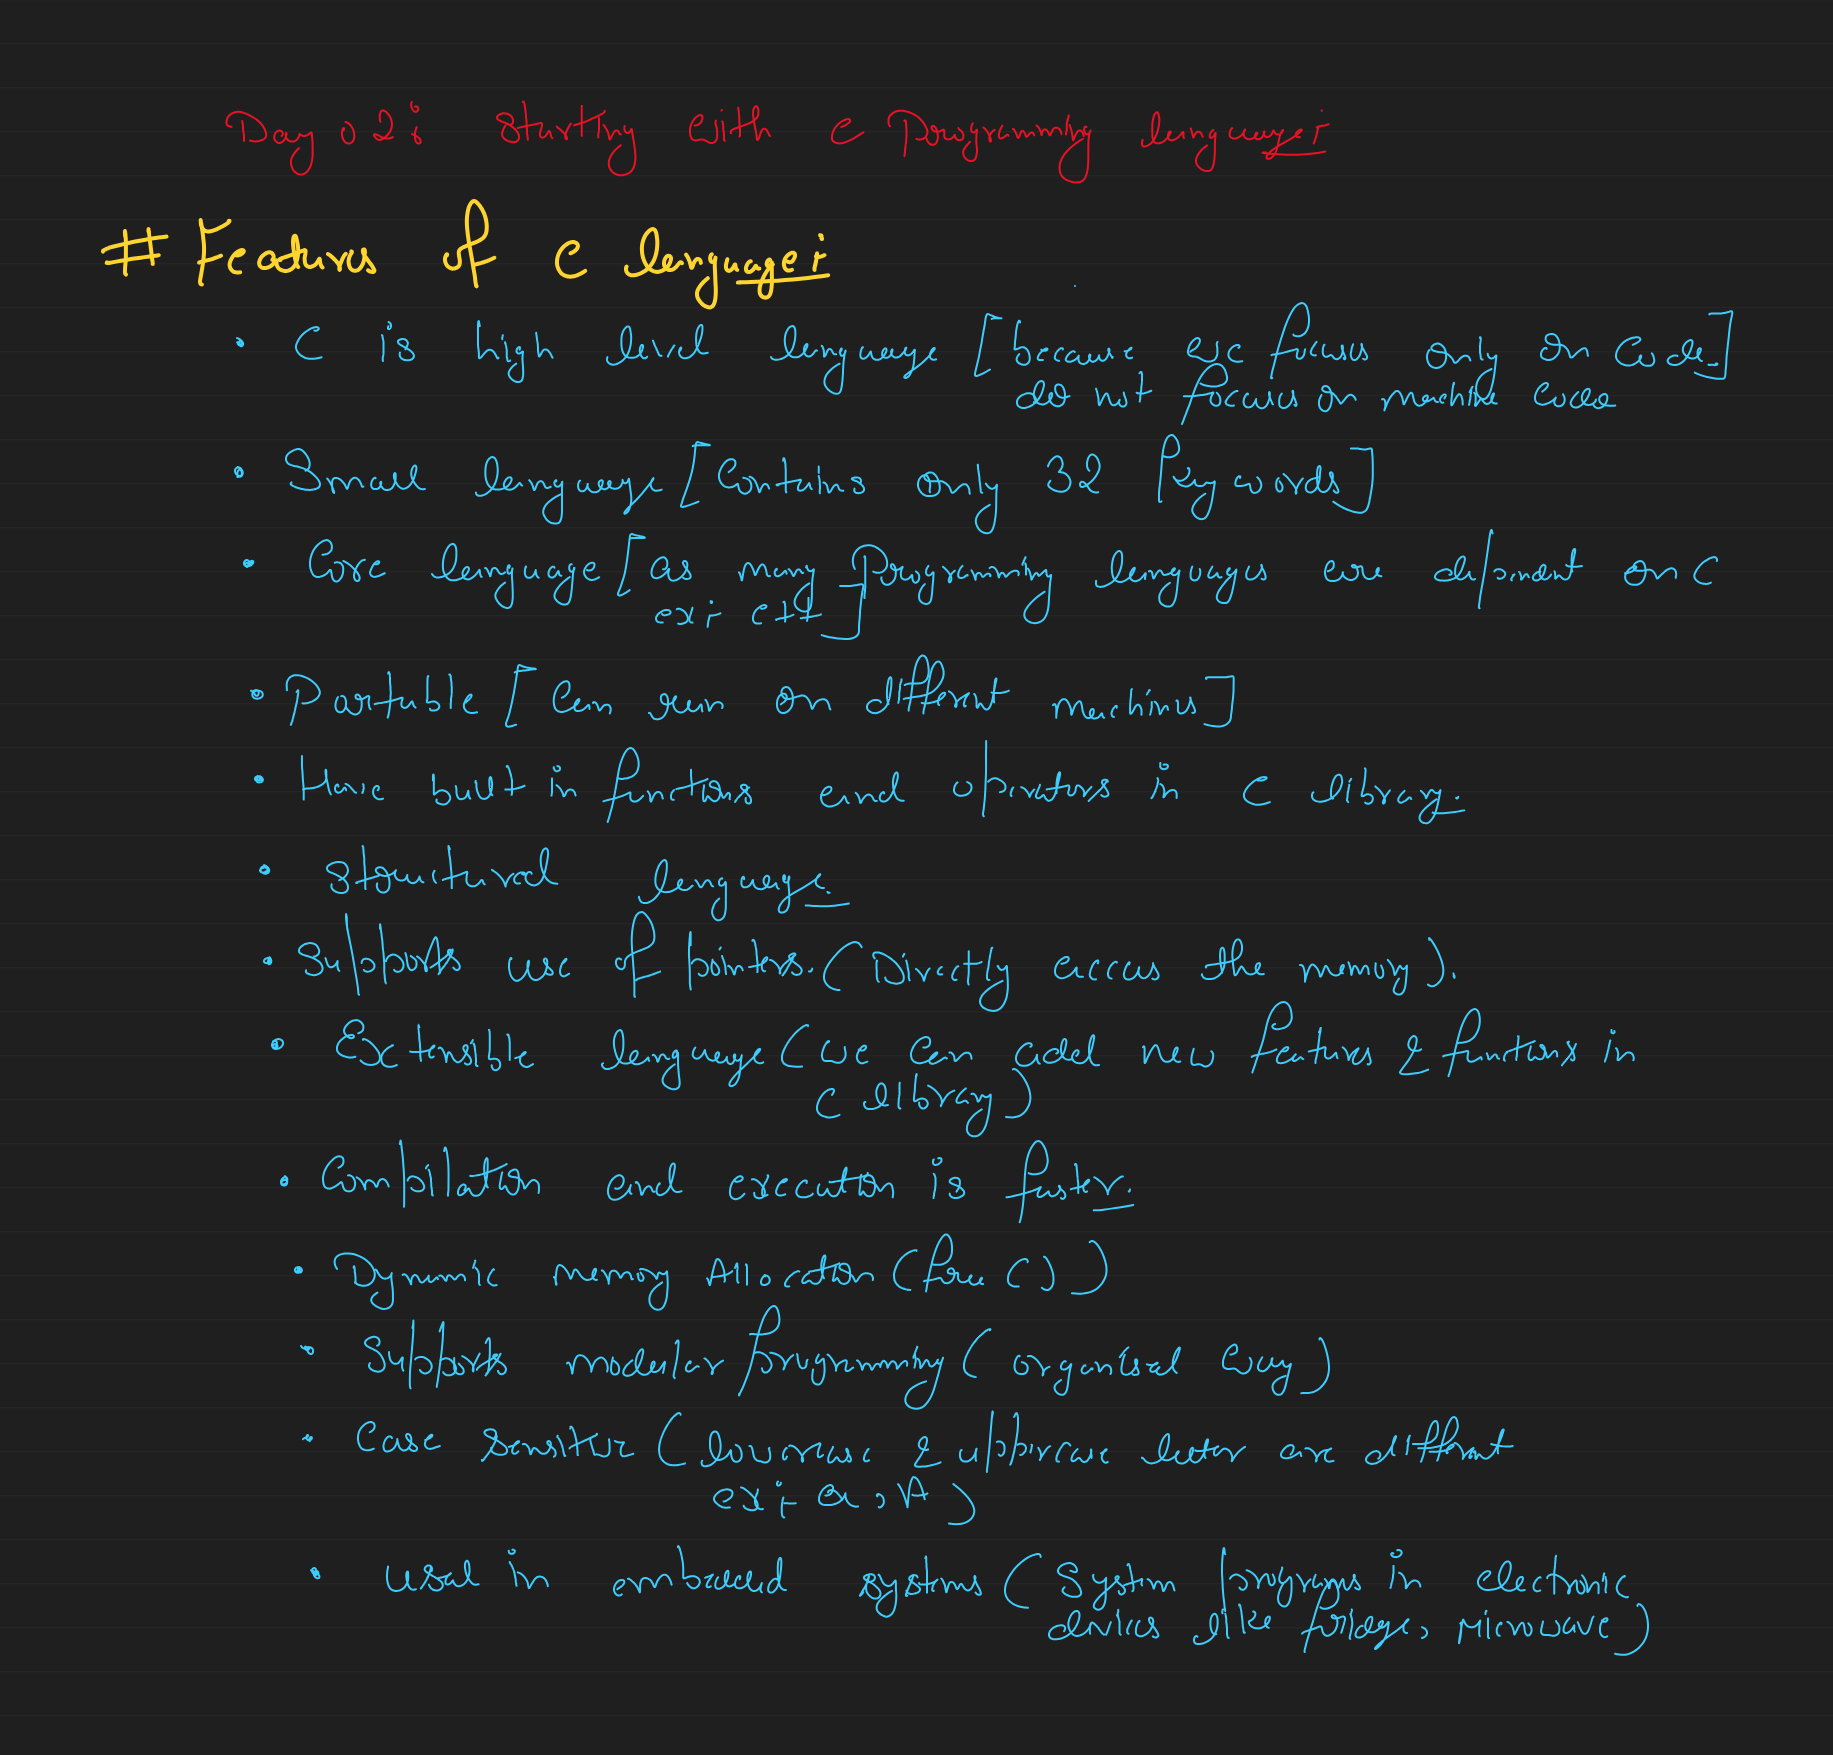 Day 02: Starting with C Programming language:-
# Features of C language:-
• C is high level language [because we focuses only on code.]
do not focuses on machine code
• Small language [Contains only 32 keywords]
• Core language [as many Programming languages are dependent on C
ex:- C++]
• Portable [Can run on different machines]
• Have built in functions and operators in C library.
• Structured language.
• Supports use of pointers. (Directly access the memory).
• Extensible language (we can add new features & functions in
C library)
• Compilation and execution is faster.
• Dynamic memory Allocation (free())
• Supports modular programming (organised way)
• Case sensitive (lowercase & uppercase letter are different
ex:- a, A)
• used in embedded systems (System programs in electronic
devices like fridge, Microwave)